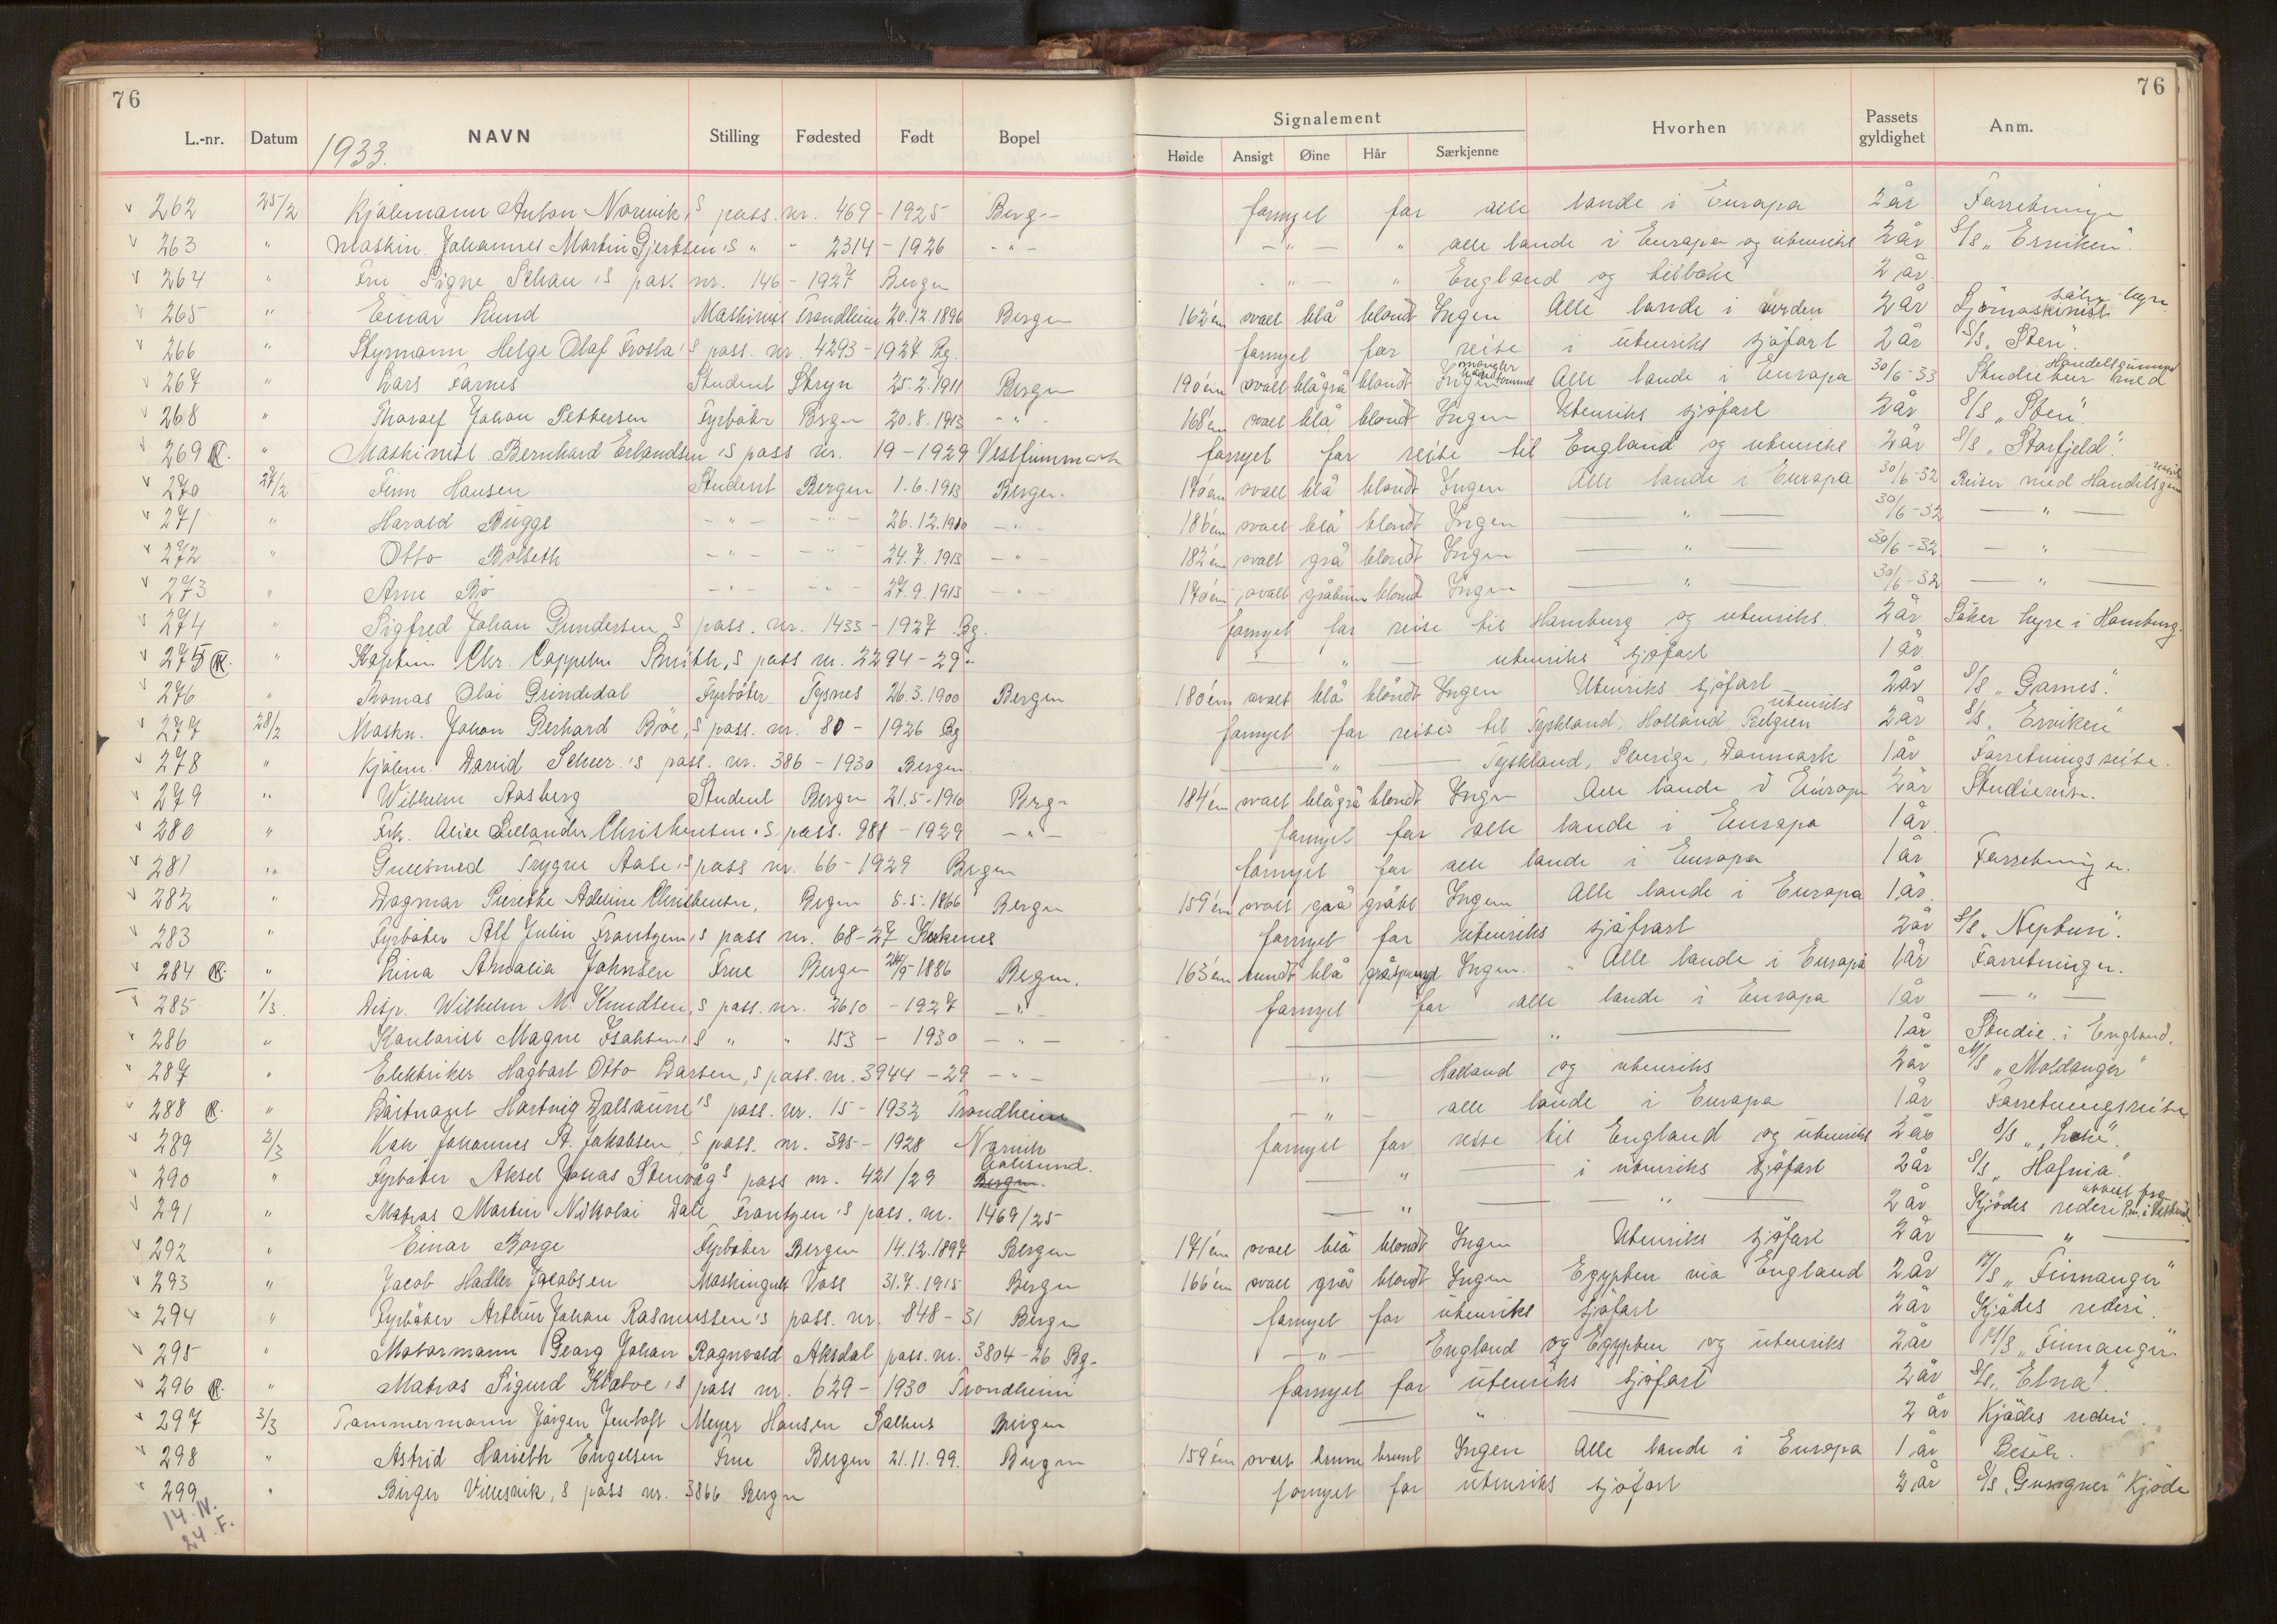 76
76
L.-nr. Datum NAVN Stilling Fødested Født Bopel Signalement Hvorhen Passets gyldighet Anm.
Høide Ansigt Øine Hår Særkjenne
1933.
262 25/2 Kjølemann Anton Norevik's pass. nr. 469 - 1925 fornyet for alle lande i Europa 2 år
263 " Maskin. Johannes Martin Gjertsen's " - 2314 - 1926 - " - - " - " alle lande i Europa og utenriks 2 år S/S "Erviken".
264 " Fru Signe Schau's pass nr. 146 - 1927 Bergen - " - " England og tilbake 2 år.
265 " Einar Lund Maskinist Trondheim 20.12.1896 Bergen 162 cm ovalt blå blondt Ingen Alle lande i verden 2 år Sjömaskinist søker hyre
266 " Styrmann Helge Olaf Frosta's pass. nr. 4293 - 1927 Bg. fornyet for reise i utenriks sjöfart 2 år S/S "Sten".
267 " Lars Farnes Student Stryn 25.2.1911 Bergen 190 cm ovalt blågrå blondt Ingen mangler Alle lande i Europa 30/6-33 Studietur med Handelsgymn
268 " Thoralf Johan Pettersen Fyrbøter Bergen 20.8.1913 - " - 168 cm ovalt blå blondt Ingen Utenriks sjöfart 2 år S/S "Sten".
269 R. " Maskinist Bernhard Erlandsen's pass nr. 19 - 1929 Vestfinnmark fornyet for reise til England og utenriks 2 år S/S "Storfjeld".
270 27/2 Finn Hansen Student Bergen 1.6.1913 Bergen. 170 cm ovalt blå blondt Ingen Alle lande i Europa 30/6-32 Reiser med Handelsgym
271 " Harald Bugge - " - - " - 26.12.1910 - " - 186 cm ovalt blå blondt Ingen " 30/6-32 - " -
272 " Otto Bolseth - " - - " - 24.7.1913 - " - 182 cm ovalt grå blondt Ingen " 30/6-32 - " -
273 " Arne Bö - " - - " - 27.9.1913 - " - 170 cm ovalt gråbrun blond Ingen " 30/6-32 - " -
274 " Sigfred Johan Gundersen's pass. nr. 1433 - 1927 Bg. fornyet for reise til Hamburg og utenriks. 2 år Söker hyre i Hamburg.
275 R. " Kaptein Chr. Cappelen Smith,s pass nr. 2294 - 29 - " - utenriks sjöfart 1 år.
276 " Thomas Olai Grindedal Fyrböter Tysnes 26.3.1900 Bergen 180 cm ovalt blå blondt Ingen Utenriks sjöfart 2 år S/S "Garnes".
277 28/2 Maskn. Johan Gerhard Böe,s pass. nr. 80 - 1926 Bg fornyet for reise til Tyskland, Holland Belgien utenriks 2 år S/S "Erviken"
278 " Kjølem. David Scheer's pass. nr. 386 - 1930 Bergen. " Tyskland, Sverige, Danmark 1 år Forretningsreise.
279 " Wilhelm Aasberg Student Bergen 21.5.1910 Bergen 184 cm ovalt blågrå blondt Ingen Alle lande i Europa 2 år Studiereise.
280 " Frk. Alice Lillander Christensen's pass. 988 - 1929 - " - fornyet for alle lande i Europa 1 år.
281 " Gullsmed Trygve Aase's pass nr. 66 - 1929 Bergen fornyet for alle lande i Europa 1 år Forretninger.
282 " Dagmar Adeline Christensen, Bergen 5.5.1866 Bergen 159 cm ovalt grå gråbl Ingen Alle lande i Europa 1 år.
283 " Fyrböter Alf Julin Frantzen's pass nr. 68 - 27 Kirkenes fornyet for utenriks sjöfart 2 år S/S "Neptun".
284 R. " Lina Amalia Johnsen Frue Bergen 24/9 1886 Bergen. 163 cm rundt blå gråsprængt Ingen. Alle lande i Europa 1 år Forretninger.
285 1/3. Disp. Wilhelm M. Knudsen,s pass. nr. 2610 - 1927 - " - fornyet for alle lande i Europa 1 år - " -
286 " Kontorist Magne Isaksen's " " 153 - 1930 - " - " 1 år Studie i England.
287 " Elektriker Hagbart Otto Larsen,s pass. nr. 3944 - 29 - " - - " - Holland og utenriks 2 år M/S "Moldanger"
288 R. " Hartvig Dalsaune's pass. nr. 15 - 1932 Trondheim - " - alle lande i Europa 1 år Forretningsreise
289 2/3 Kok Johannes St. Jakobsen,s pass. nr. 395 - 1928 Narvik fornyet for reise til England og utenriks 2 år S/S "Loke".
290 " Fyrböter Aksel Jonas Stenvåg's pass nr. 421/29 Bergen. Aalesund. " i utenriks sjöfart 2 år S/S "Hafnia".
291 " Matros Martin Nikolai Dale Frantzen's pass. nr. 1469/25 " " 2 år Kjödes rederi
292 " Einar Borge Fyrböter Bergen 14.12.1897 Bergen 171 cm ovalt blå blondt Ingen Utenriks sjöfart 2 år "
293 " Jacob Hadler Jacobsen Maskingutt Voss 31.7.1915 Bergen 166 cm ovalt grå blondt Ingen Egypten via England 2 år M/S "Finnanger"
294 " Fyrböter Arthur Johan Rasmussen's pass. nr. 848 - 31 Bergen fornyet for utenriks sjöfart 2 år Kjödes rederi.
295 " Motormann Georg Johan Ragnvald Aksdal pass. nr. 3804 - 26 Bg. - " - England og Egypten og utenriks 2 år M/S "Finnanger".
296 R. " Matros Sigurd Klæboe's pass nr. 629 - 1930 Trondheim fornyet for utenriks sjöfart 2 år S/S "Elna".
297 3/3 Tømmermann Jörgen Jentoft Meyer Hansen Salhus Bergen " 2 år Kjødes rederi.
298 " Astrid Harieth Engelsen Frue Bergen 21.11.99. Bergen 159 cm ovalt brune brunt Ingen Alle lande i Europa 1 år Besök.
299 " Birger Villesvik,s pass nr. 3866 Bergen fornyet for utenriks sjöfart 2 år S/S "Gungner" Kjöde
14. N.
24. F.